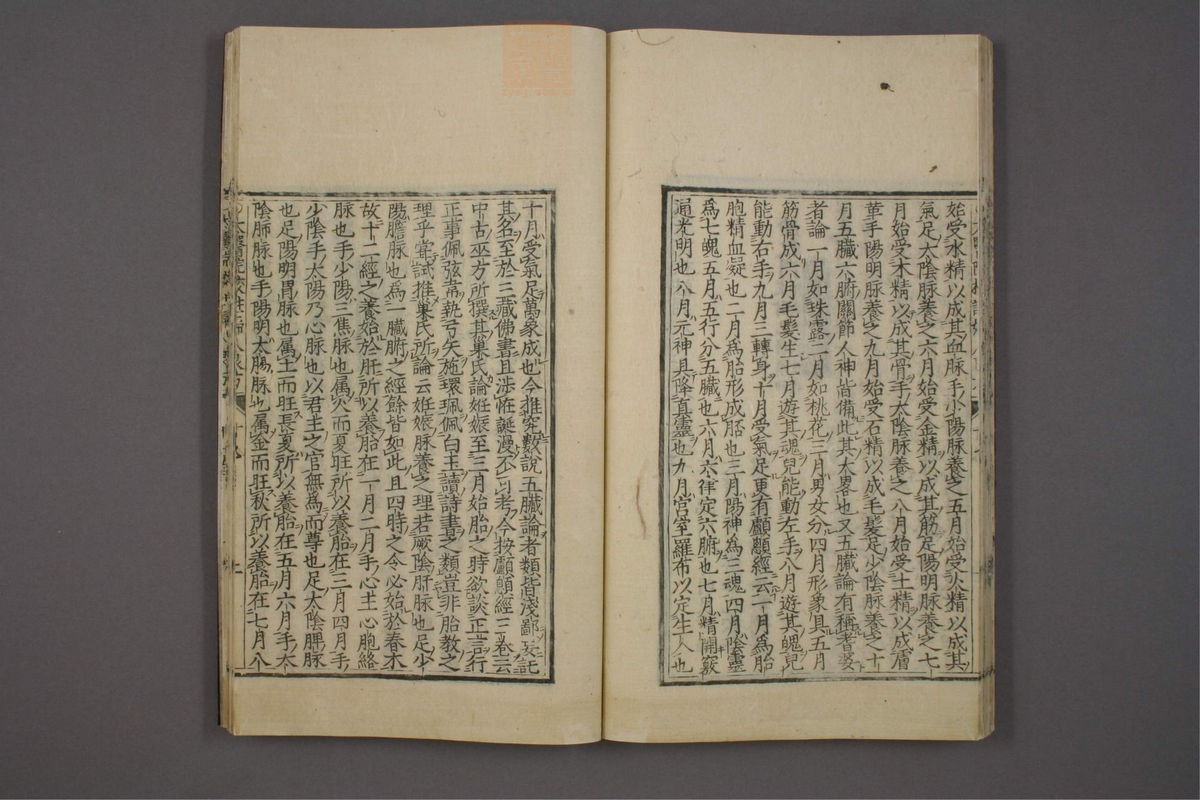 始受水精以成其血脉手少陽脉養之五月始受火精以成其
氣足太陰脉養之六月始受金精以成其筋足陽明脉養之七
月始受木精以成其骨手太陰脉養之八月始受土精以成膚
革手陽明脉養之九月始受石精以成毛髮足少陰脉養之十
月五臟六腑關節人神皆備此其大畧也又五臟論有稱耆婆
者論一月如珠露二月如桃花三月男女分四月形象具五月
筋骨成六月毛髮生七月遊其魂兒能動左手八月遊其魄兒
能動右手九月三轉身十月受氣足更有顱顖經云一月為胎
胞精血凝也二月為胎形成胚也三月陽神為三魂四月陰靈
為七魄五月五行分五臟也六月六律定六腑也七月精開竅
通光明也八月元神具降真靈也九月宮室羅布以定生人也
十月受氣足萬象成也今推究數說五臟論者類皆淺鄙妄託
其名至於三藏佛書且涉恠誕漫不可考今按顱顖經三卷云
中古巫方所撰其巢氏論姙娠至三月始胎之時欲談正言行
正事佩弦韋執弓矢施環珮佩白玉讀詩書之類豈非胎教之
理乎甞試推巢氏所論云姙娠脉養之理若厥陰肝脉也足少
陽膽脉也為一臟腑之經餘皆如此且四時之令必始於春木
故十二經之養始於肝所以養胎在一月二月手心主心胞絡
脉也手少陽三焦脉也属火而夏旺所以養胎在三月四月手
少陰手太陽乃心脉也以君主之官無為而尊也足太陰脾脉
也足陽明胃脉也属土而旺長夏所以養胎在五月六月手太
陰肺脉也手陽明大腸脉也属金而旺秋所以養胎在七月八